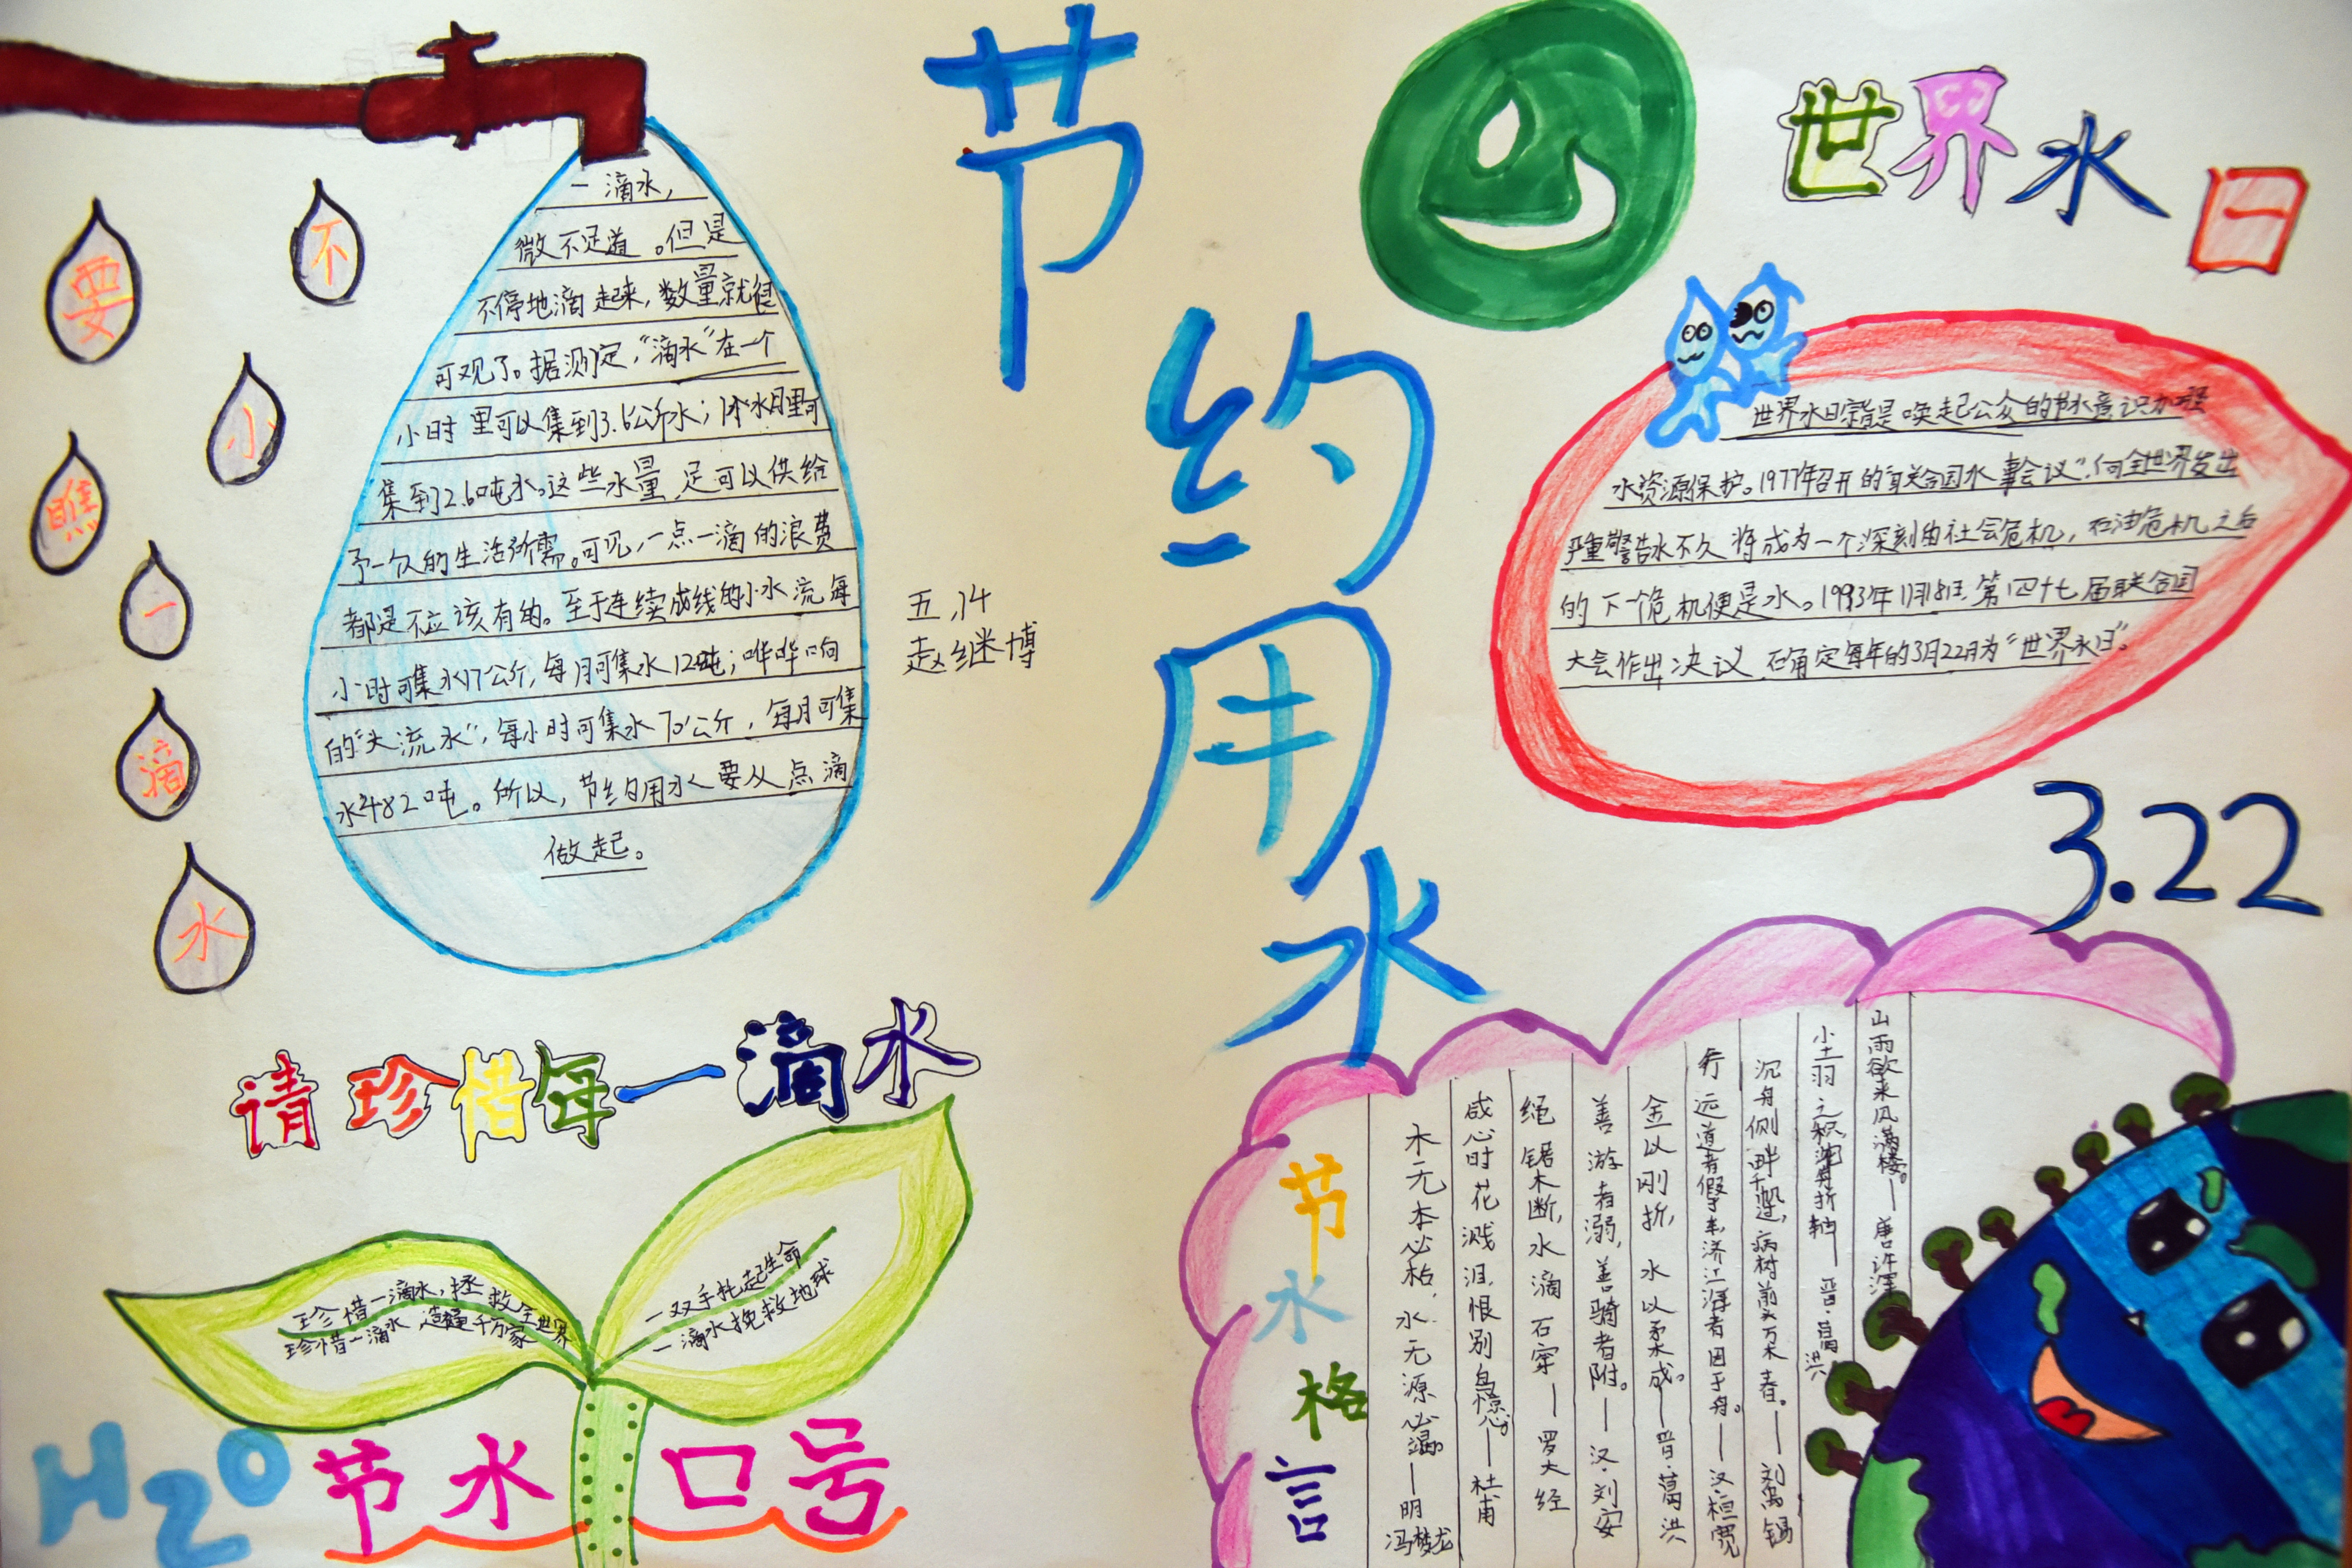 节约用水
不
要
小
瞧
一
滴
水
一滴水,
微不足道。但是
不停地滴起来,数量就很
可观了。据测定,“滴水”在一个
小时里可以集到3.6公斤水;1个月里可
集到2.6吨水。这些水量,足可以供给
予一个人的生活所需。可见,一点一滴的浪费
都是不应该有的。至于连续成线的小水流,每
小时可集水17公斤,每月可集水12吨;哗哗响
的“大流水”,每小时可集水70公斤,每月可集
水482吨。所以,节约用水要从点滴
做起。
五.14
赵继博
请珍惜每一滴水
珍惜一滴水,拯救全世界
珍惜一滴水 造福千万家
一双手托起生命
一滴水挽救地球
H2O
节水口号
世界水日
世界水日宗旨是唤起公众的节水意识加强
水资源保护。1977年召开的“联合国水事会议”,向全世界发出
严重警告水不久将成为一个深刻的社会危机,石油危机之后
的下一个危机便是水。1993年1月18日,第四十七届联合国
大会作出决议,确定每年的3月22日为“世界水日”。
3.22
节水格言
山雨欲来风满楼。—唐·许浑
小土羽之积,沉舟折轴—晋·葛洪
沉舟侧畔千帆过,病树前头万木春。—刘禹锡
行远道者假于车,济江海者因于舟。—汉·桓宽
金以刚折,水以柔成。—晋·葛洪
善游者溺,善骑者附。—汉·刘安
绳锯木断,水滴石穿—罗大经
感心时花溅泪,恨别鸟惊心。—杜甫
木无本必枯,水无源必竭。—明 冯梦龙